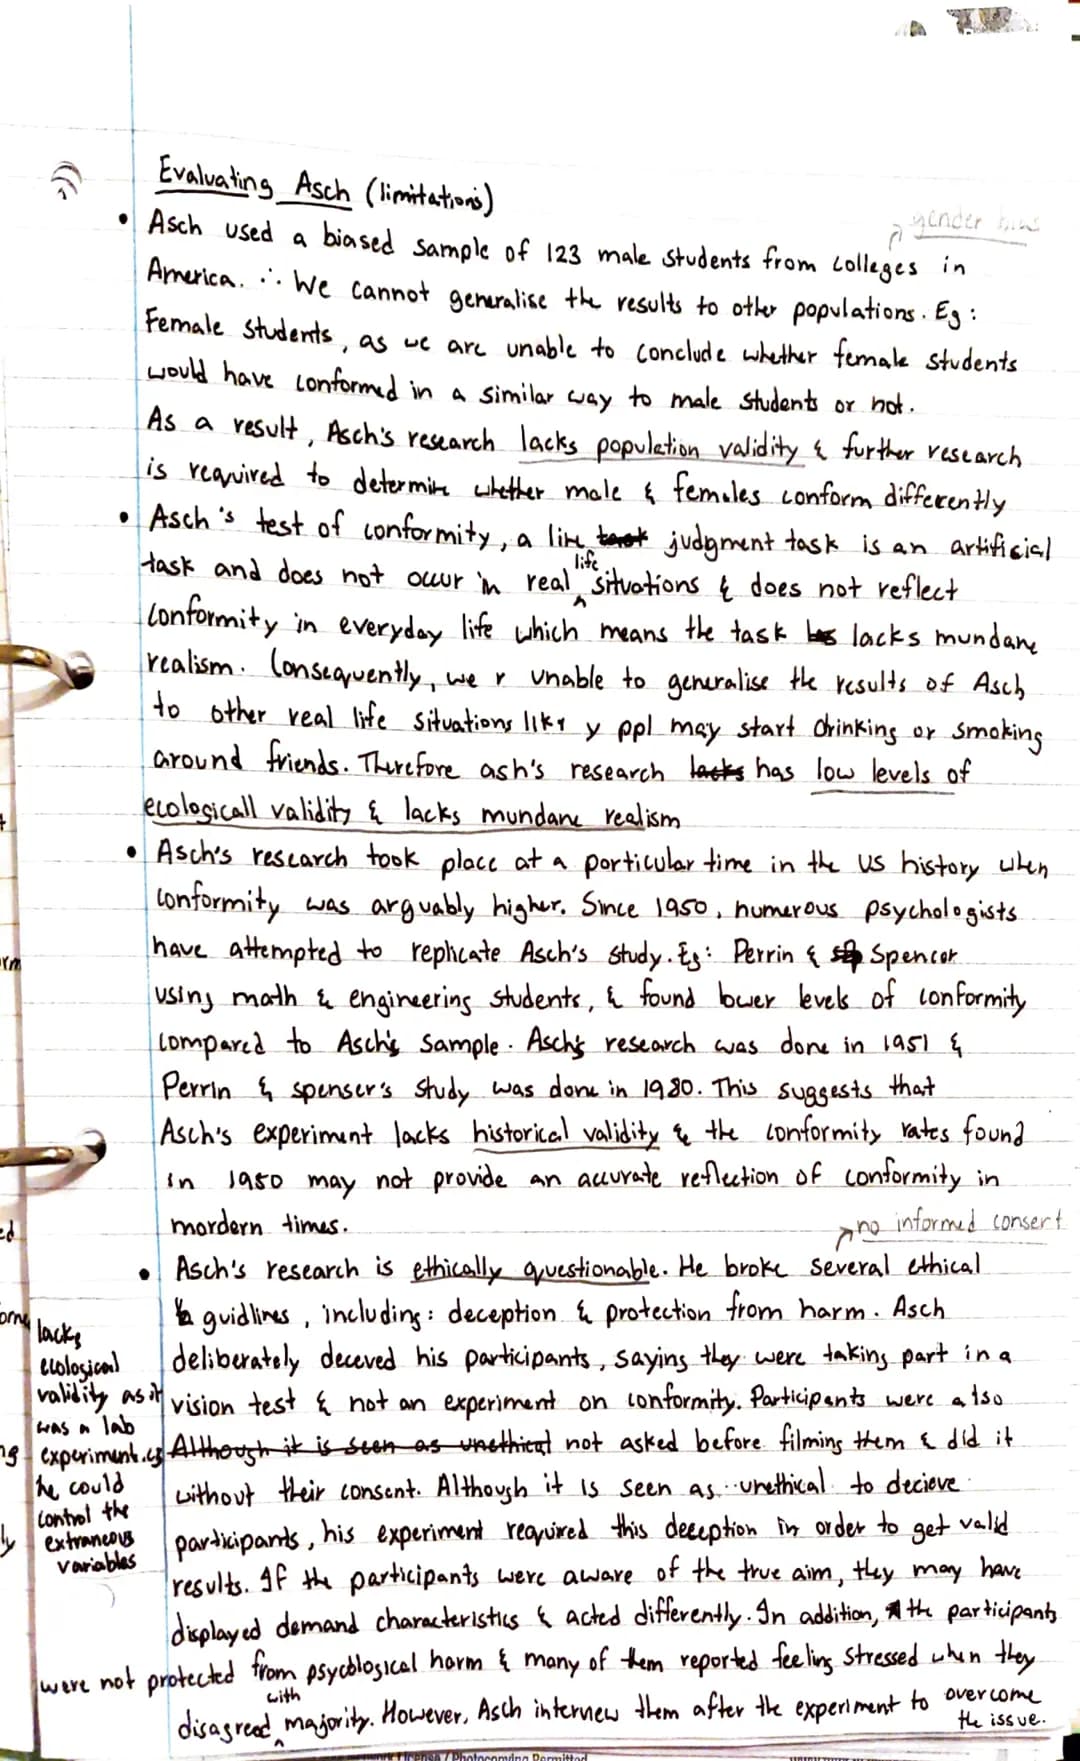 Evaluating Asch (limitations)
gender bias
• Asch used a biased sample of 123 male students from colleges in
America. ∴ We cannot generalise the results to other populations. Eg:
Female students, as we are unable to conclude whether female students
would have conformed in a similar way to male students or not.
As a result, Asch's research lacks population validity & further research
is required to determine whether male & females conform differently
• Asch's test of conformity, a line judgment task is an artificial
task and does not occur in real life situations & does not reflect
conformity in everyday life which means the task lacks mundane
realism. Consequently, we r unable to generalise the results of Asch
to other real life situations like y ppl may start drinking or smoking
around friends. Therefore ash's research lacks has low levels of
ecologicall validity & lacks mundane realism
• Asch's research took place at a particular time in the US history when
conformity was arguably higher. Since 1950, numerous psychologists
have attempted to replicate Asch's study. Eg: Perrin & Spencer
using math & engineering students, & found lower levels of conformity
compared to Asch's sample. Asch's research was done in 1951 &
Perrin & spenser's study was done in 1980. This suggests that
Asch's experiment lacks historical validity & the conformity rates found
in 1950 may not provide an accurate reflection of conformity in
mordern times.
no informed consert
• Asch's research is ethically questionable. He broke several ethical
guidlines, including: deception & protection from harm. Asch
deliberately deceved his participants, saying they were taking part in a
vision test & not an experiment on conformity. Participants were also
Although it is seen as unethical not asked before filming them & did it
without their consent. Although it is seen as unethical to decieve
participants, his experiment required this deception in order to get valid
results. If the participants were aware of the true aim, they may have
displayed demand characteristics & acted differently. In addition, the participants
were not protected from psycological harm & many of them reported feeling stressed when they
disagreed with majority. However, Asch interview them after the experiment to overcome
the issue.
lacks
ecological
validity as it
was a lab
experiment. eg
he could
control the
extraneous
variables